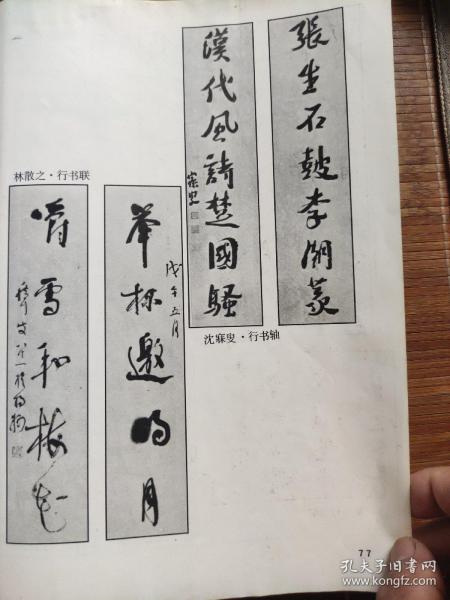 張生石鼓李潮篆
漢代風詩楚國騷
寐叟
沈寐叟·行书轴
林散之·行书联
举杯邀明月
戊午五月
嚼雪和梅花
77
孔夫子旧书网
www.kongfz.com